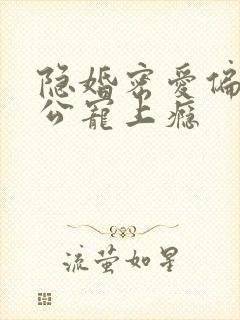 隐婚密爱偏
公宠上瘾
流萤如星